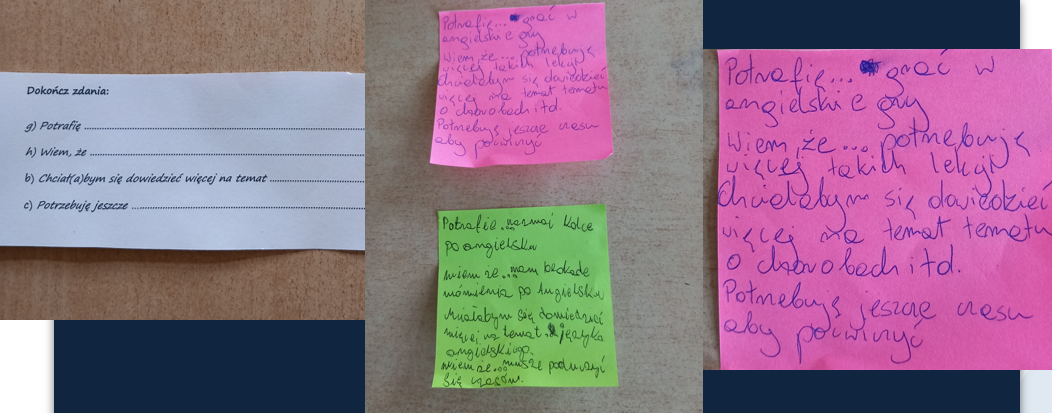 Dokończ zdania:
g) Potrafię
h) Wiem, że
b) Chciał(a)bym się dowiedzieć więcej na temat
c) Potrzebuję jeszcze
Potrafię... grać w
angielskie gry
Wiem, że... potrzebują
więcej takich lekcji
Chciałabym się dowiedzieć
więcej na temat tematu
o chorobach itd.
Potrzebuję jeszcze czasu
aby poćwiczyć
Potrafię...
po angielsku
wiem że...mam
mówienia po Angielsku
się dowiedzieć
więcej na temat języka
angielskiego.
wiem że...muszę poduczyć
się czasów.
Potrafię... grać w
angielskie gry
Wiem, że... potrzebują
więcej takich lekcji
Chciałabym się dowiedzieć
więcej na temat tematu
o chorobach itd.
Potrzebuję jeszcze czasu
aby poćwiczyć